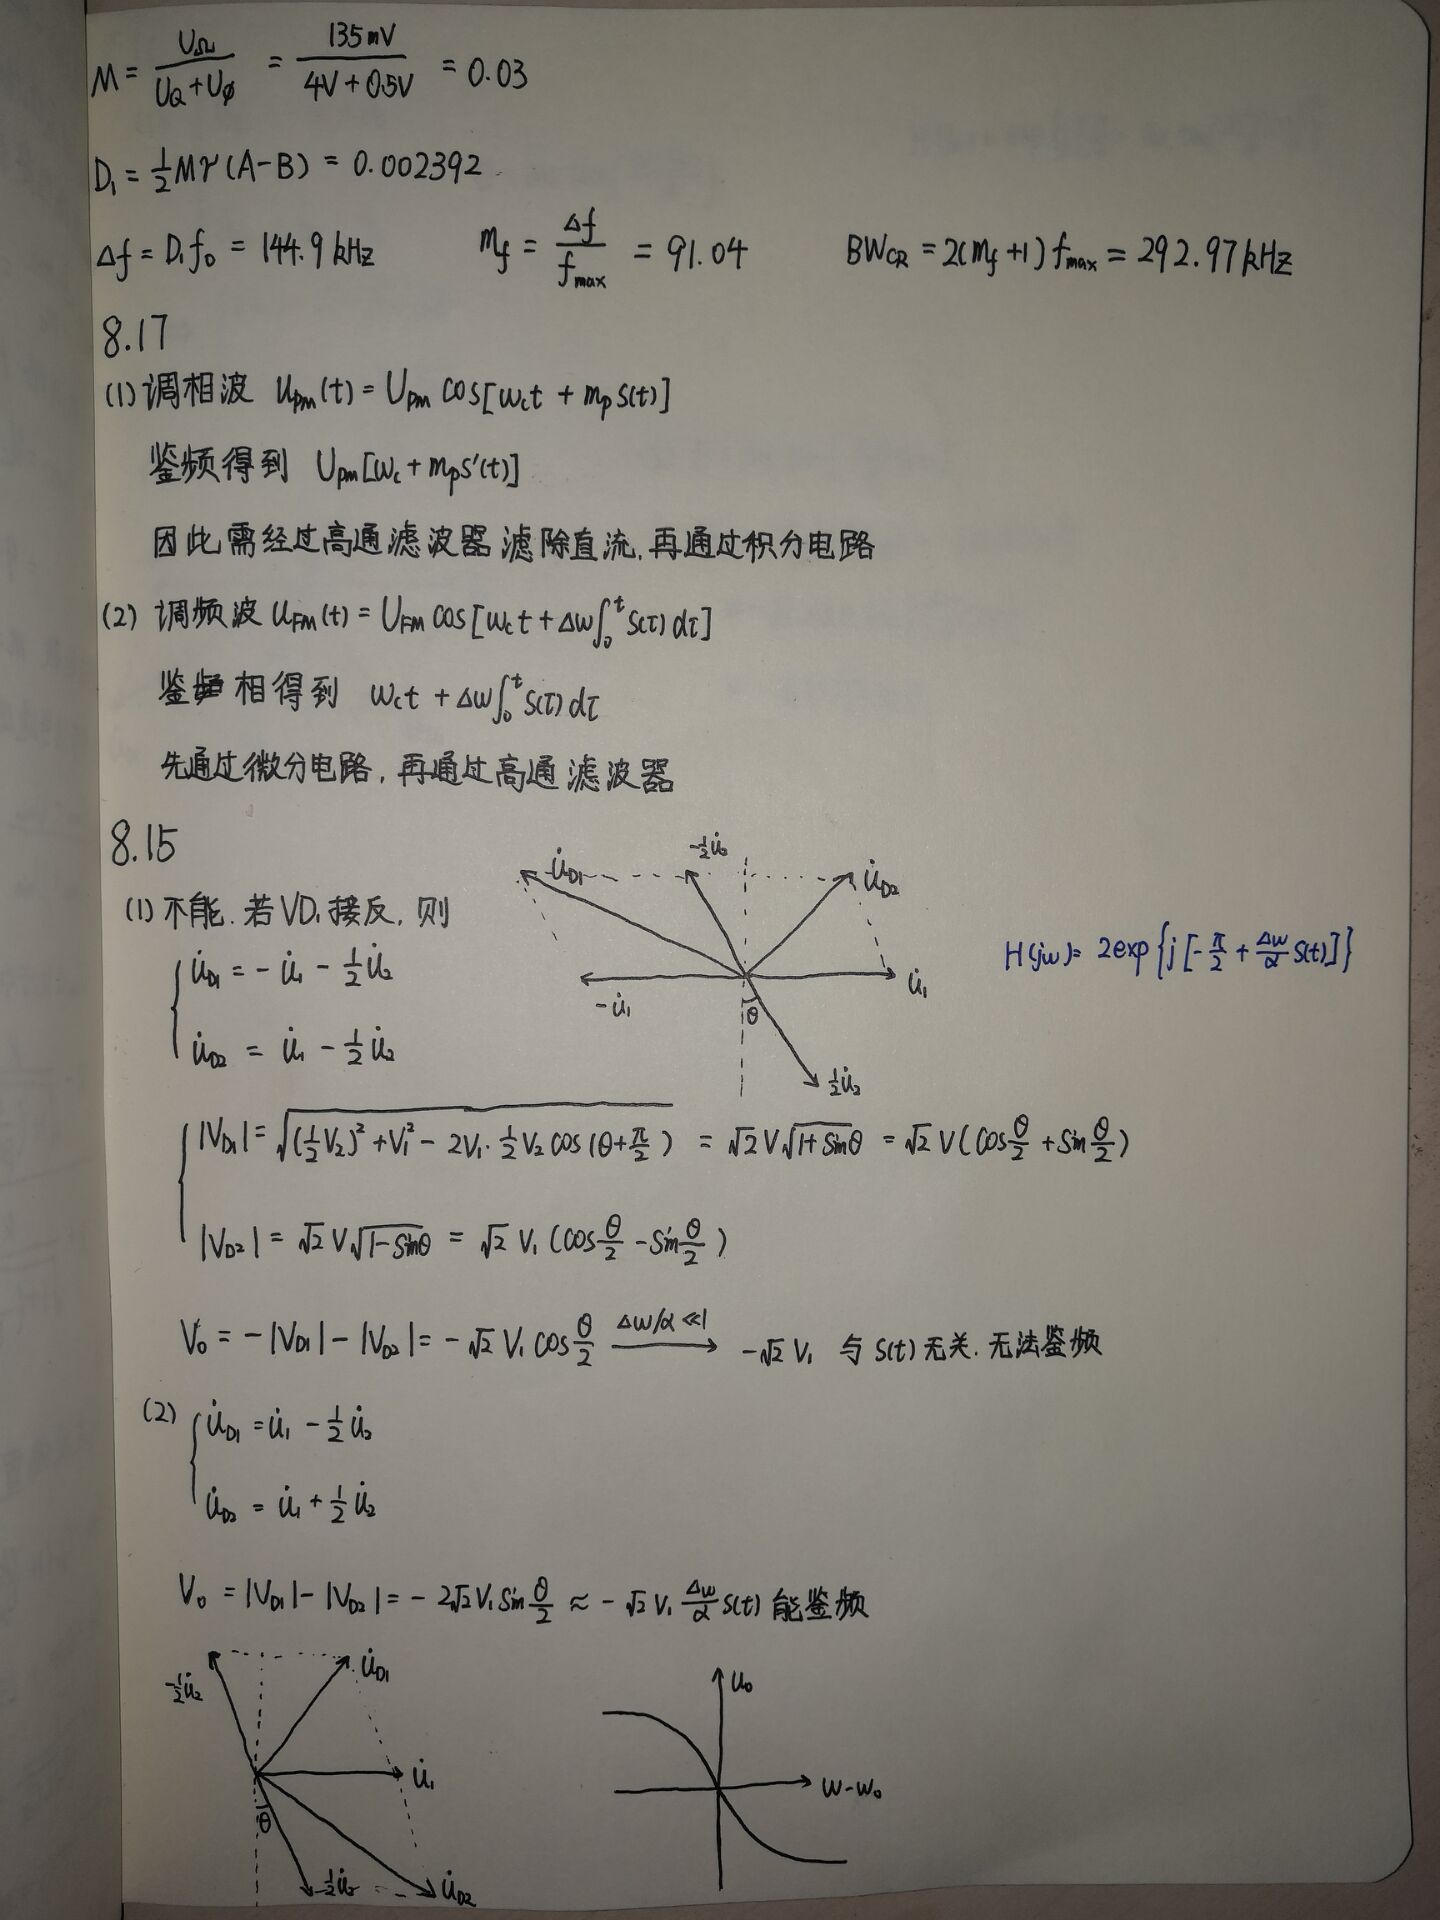 M = UΩ/(UQ+Uφ) = 135mV/(4V+0.5V) = 0.03
D₁ = ½Mγ(A-B) = 0.002392
Δf = D₁f₀ = 144.9kHz m_f = Δf/f_max = 91.04 BW_CR = 2(m_f+1)f_max = 292.97kHz
8.17
(1) 调相波 u_PM(t) = U_PM cos[ω_c t + m_p s(t)]
鉴频得到 U_PM[ω_c + m_p s'(t)]
因此需经过高通滤波器滤除直流, 再通过积分电路
(2) 调频波 u_FM(t) = U_FM cos[ω_c t + Δω∫₀ᵗ s(τ)dτ]
鉴相得到 ω_c t + Δω∫₀ᵗ s(τ)dτ
先通过微分电路, 再通过高通滤波器
8.15
(1) 不能. 若VD₁接反, 则
U̇_D1 = -U̇₁ - ½U̇₂
U̇_D2 = U̇₁ - ½U̇₂
U̇_D1 -½U̇₂ U̇_D2
-U̇₁ θ U̇₁
½U̇₂
H(jω) = 2exp{j[-π/2 + Δω/α s(t)]}
|V_D1| = √((½V₂)² + V₁² - 2V₁·½V₂cos(θ+π/2)) = √2 V√(1+sinθ) = √2 V(cos θ/2 + sin θ/2)
|V_D2| = √2 V√(1-sinθ) = √2 V₁(cos θ/2 - sin θ/2)
V₀ = -|V_D1| - |V_D2| = -√2 V₁ cos θ/2 —Δω/α≪1→ -√2 V₁ 与 s(t) 无关. 无法鉴频
(2) U̇_D1 = U̇₁ - ½U̇₂
U̇_D2 = U̇₁ + ½U̇₂
V₀ = |V_D1| - |V_D2| = -2√2 V₁ sin θ/2 ≈ -√2 V₁ Δω/α s(t) 能鉴频
-½U̇₂ U̇_D1
U̇₁
θ
½U̇₂ U̇_D2
u₀
ω-ω₀